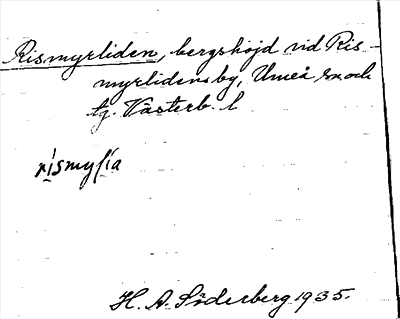 Rismyrliden, bergshöjd vid Ris-
myrlidens by, Umeå sn och
tg. Västerb. l
rismyli̇́a
H. A. Söderberg 1935.